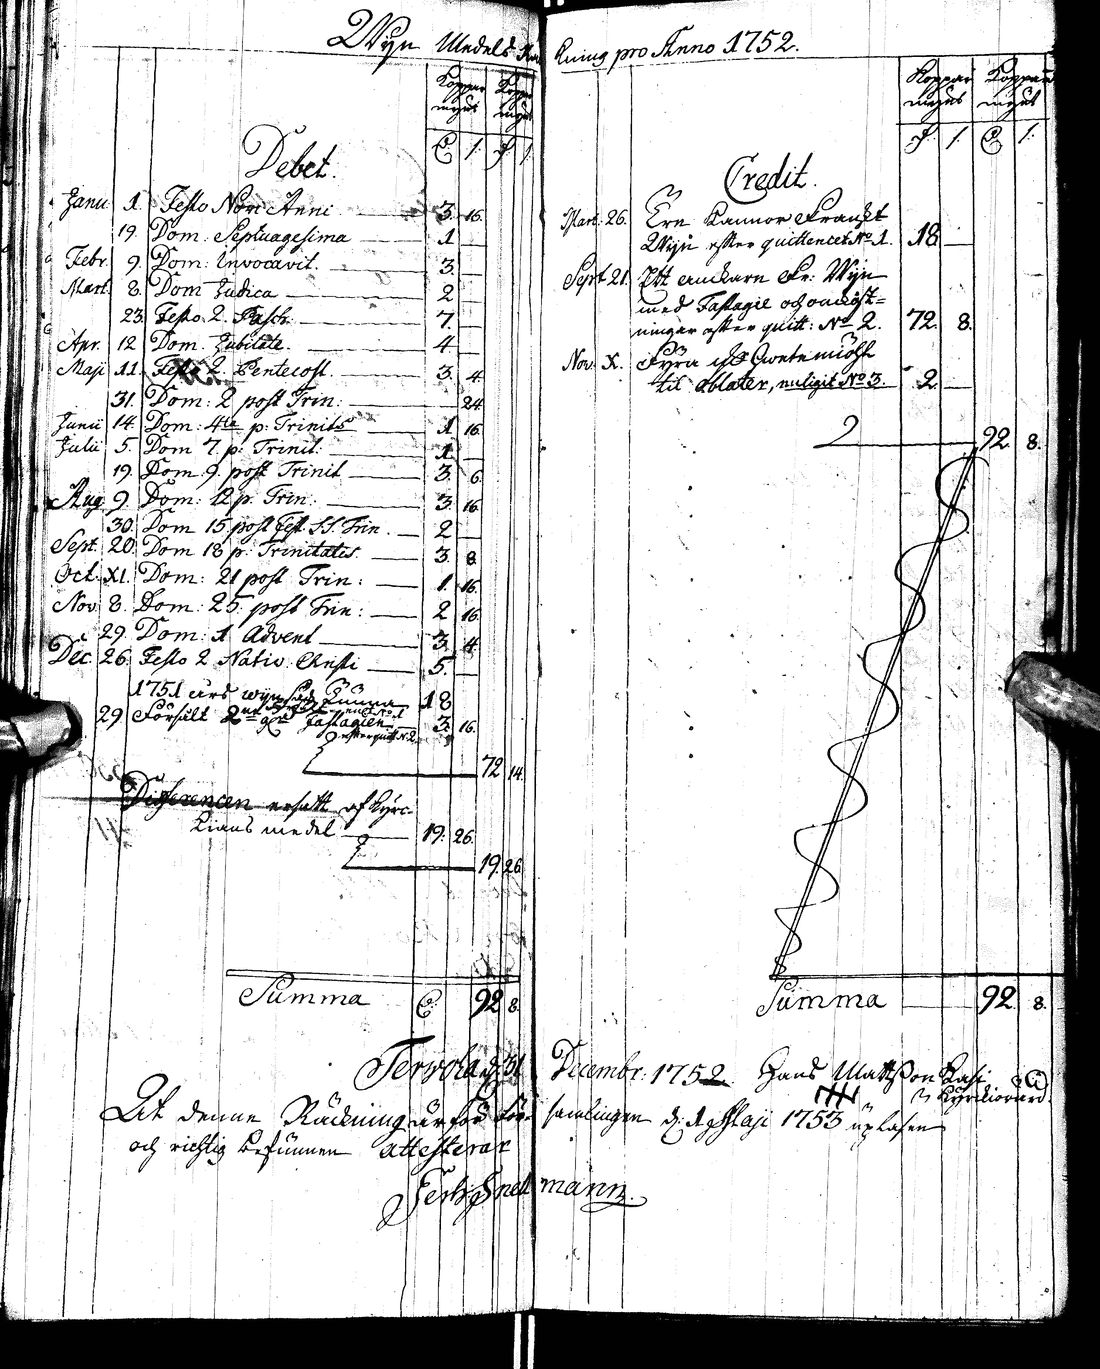 Wyn Medels Räkning pro Anno 1752.
Koppar mynt Koppar mynt
D. 1. D. 1.
Debet.
Janu 1. Festo Novi Anni 3. 16.
19. Dom: Septuagesima 1.
Febr. 9. Dom: Invocavit. 3.
Mart. 8. Dom Judica 2
23. Festo 2. Pasch. 7.
Apr. 12 Dom. Jubilate. 4.
Maji 11. Festo 2. Pentecost 3. 4.
31. Dom: 2 post Trin: 24.
Junii 14. Dom: 4ta p: Trinits 1 16.
Julii 5. Dom 7. p: Trinit: 1.
19. Dom. 9. post Trinit 3. 6.
Aug 9. Dom: 12 p: Trin: 3. 16.
30. Dom 15 post Fest. SS. Trin. 2
Sept. 20. Dom 18 p: Trinitatis. 3. 8.
Oct. XI. Dom: 21 post Trin: 1. 16.
Nov: 8. Dom: 25. post Trin: 2 16.
29. Dom: 1 Advent 3. 4.
Dec. 26. Festo 2 Nativ. Christi 5.
1751 års wyn 18
29 Försålt Fastagier 3. 16.
efter quitt N. 2.
72 14.
Differencen ersatt af Kyrc-
kians medel 19: 26.
19. 26
Summa D. 92 8.
Koppar mynt Koppar mynt
D. 1. D. 1.
Credit.
Mart. 26. Tre Kannor Franskt
Wyn efter quittencet No 1. 18.
Sept 21. Ett anckare Fr: Wyn
med Fastagie och omkåst=
ningar efter quitt: No 2. 72. 8.
Nov. X. Fyra Hwetemiöhl
til oblater, enligit No 3. 2.
92. 8.
Summa 92. 8.
Terwola d. 31 Decembr: 1752. Hans Matsson Kasi
Kyrckiovärd.
At denne Räckning är för Församlingen d. 1 Maji 1753 upläsen
och richtig befunnen attesterar
Snellmann.